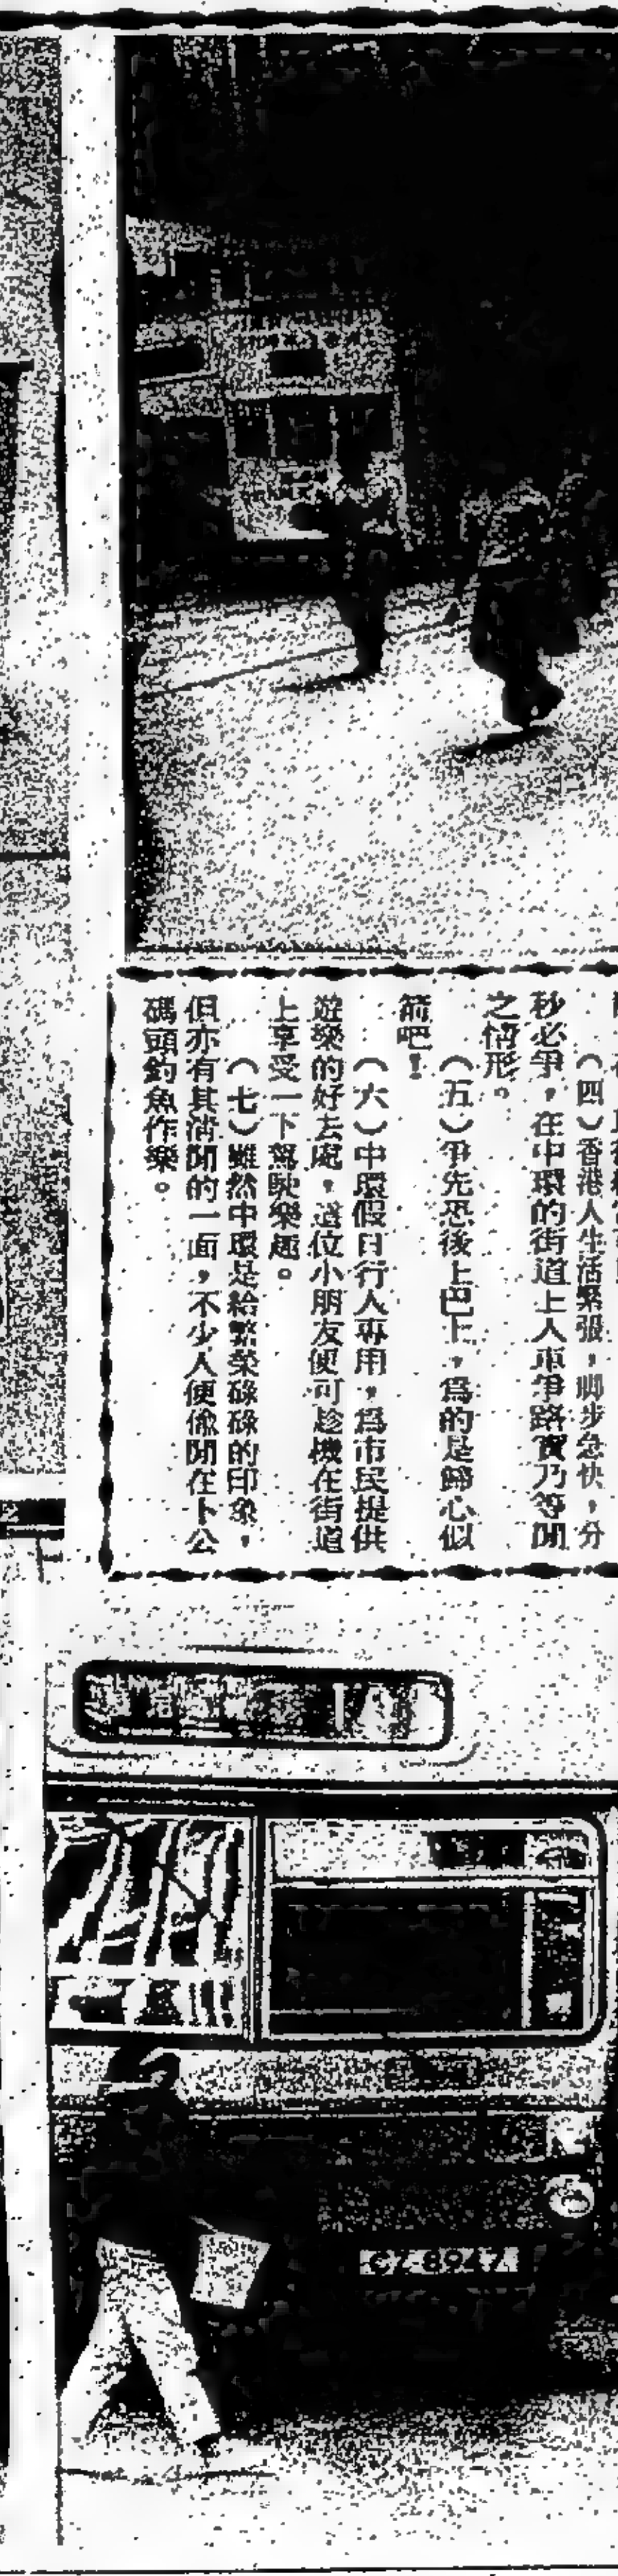 （四）香港人生活緊張，脚步急快，分
秒必爭，在中環的街道上人車爭路實乃等閒
之情形。
（五）爭先恐後上巴士，爲的是歸心似
箭吧！
（六）中環假日行人專用，爲市民提供
遊樂的好去處，這位小朋友便可趁機在街道
上享受一下駕駛樂趣。
（七）雖然中環是給繁榮碌碌的印象，
但亦有其消閒的一面，不少人便偸閒在卜公
碼頭釣魚作樂。
CZ-8947